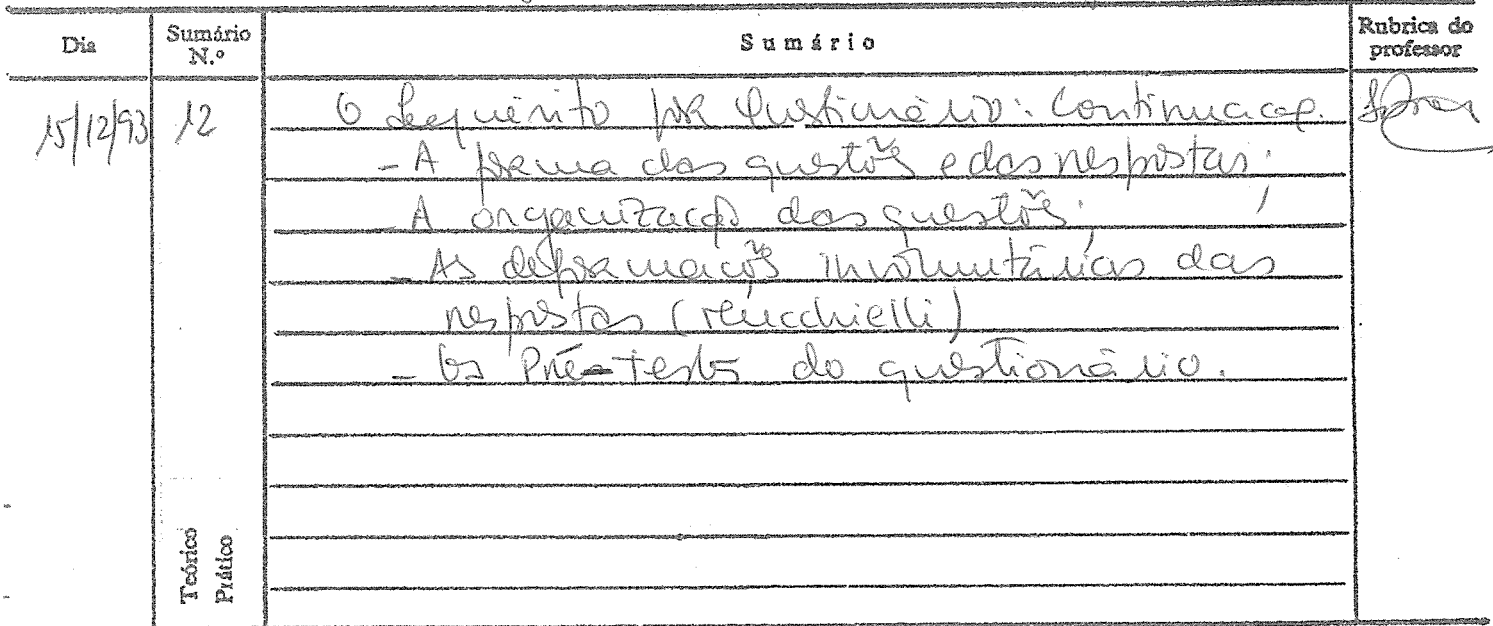 Dia
Sumário N.º
Sumário
Rubrica do professor
15/12/93
12
O Inquérito por Questionário: Continuação.
- A forma das questões e das respostas;
- A organização das questões;
- As deformações involuntárias das
respostas (Mucchielli)
- Os Pré-testes do questionário.
Teórico
Prático